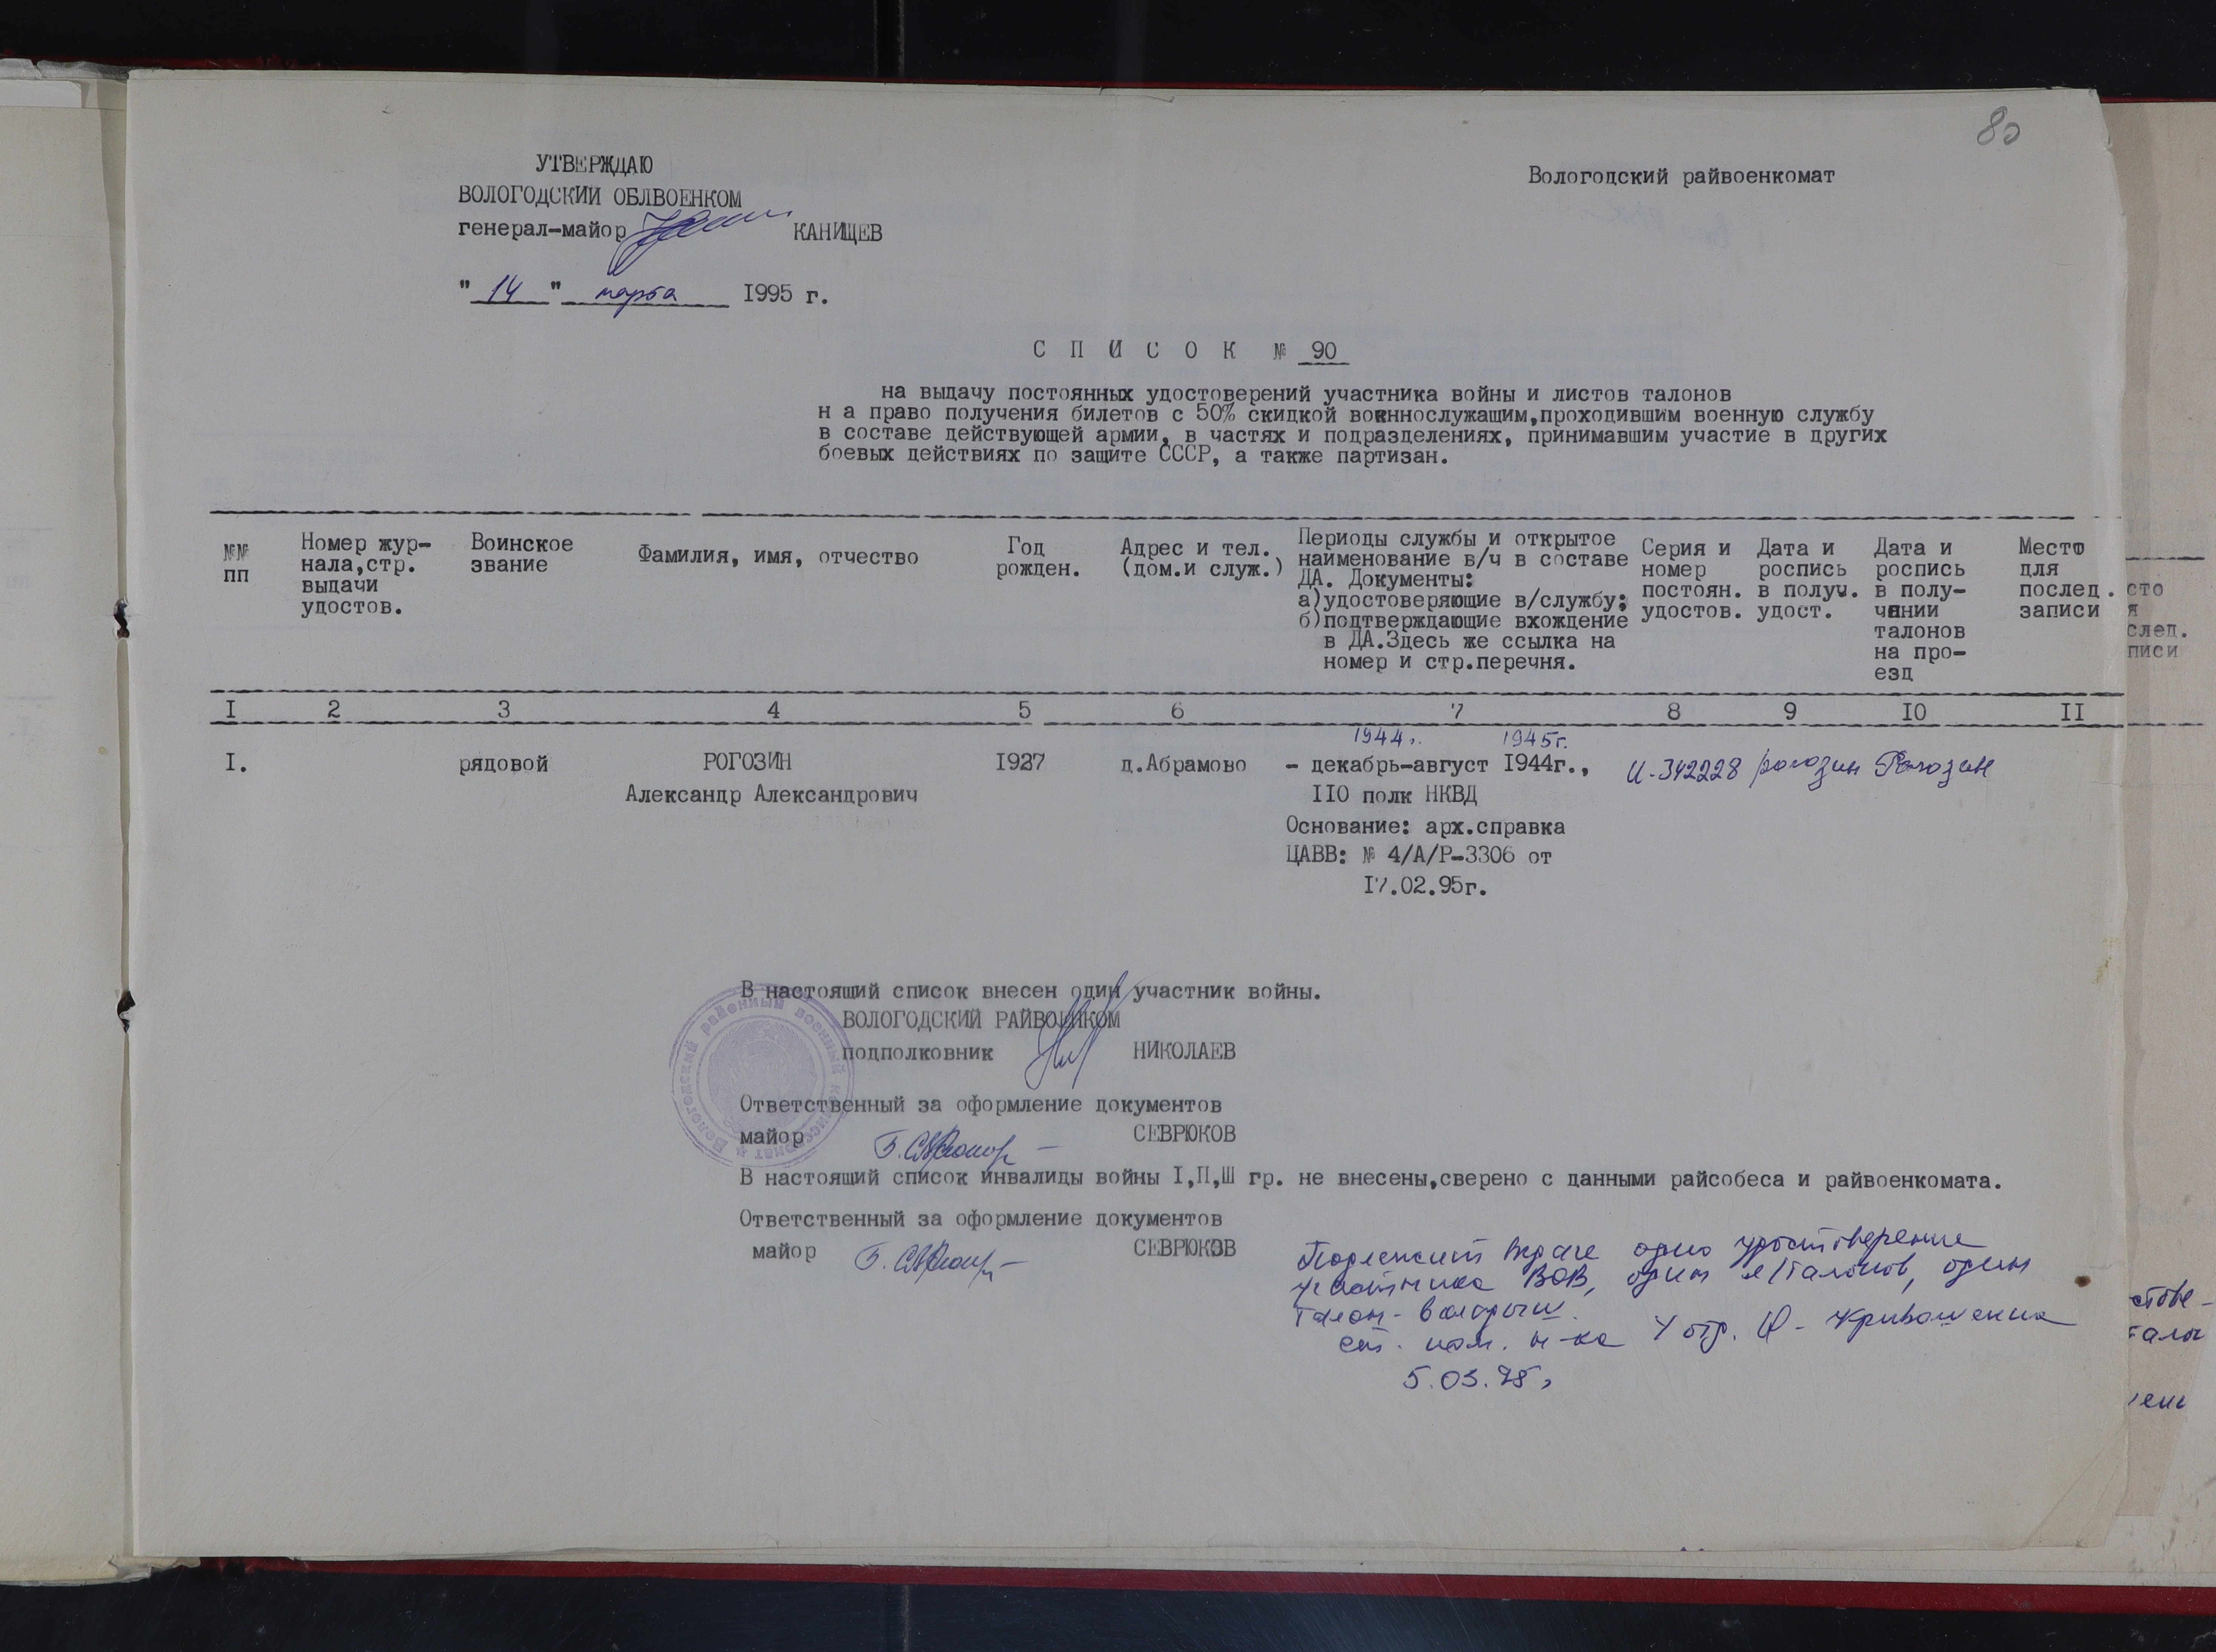 80
УТВЕРЖДАЮ
ВОЛОГОДСКИЙ ОБЛВОЕНКОМ
генерал-майор КАНИЩЕВ
"14" марта 1995 г.
Вологодский райвоенкомат
С П И С О К № 90
на выдачу постоянных удостоверений участника войны и листов талонов
н а право получения билетов с 50% скидкой военнослужащим,проходившим военную службу
в составе действующей армии, в частях и подразделениях, принимавшим участие в других
боевых действиях по защите СССР, а также партизан.
№№
пп
Номер жур-
нала,стр.
выдачи
удостов.
Воинское
звание
Фамилия, имя, отчество
Год
рожден.
Адрес и тел.
(дом.и служ.)
Периоды службы и открытое
наименование в/ч в составе
ДА. Документы:
а)удостоверяющие в/службу;
б)подтверждающие вхождение
в ДА.Здесь же ссылка на
номер и стр.перечня.
Серия и
номер
постоян.
удостов.
Дата и
роспись
в получ.
удост.
Дата и
роспись
в полу-
чении
талонов
на про-
езд
Место
для
послед.
записи
I 2 3 4 5 6 7 8 9 IO II
1944г. 1945г.
I. рядовой РОГОЗИН I927 д.Абрамово - декабрь-август I944г., И-342228 Рогозин Рогозин
Александр Александрович IIO полк НКВД
Основание: арх.справка
ЦАВВ: № 4/А/Р-3306 от
I7.02.95г.
В настоящий список внесен один участник войны.
ВОЛОГОДСКИЙ РАЙВОЕНКОМ
подполковник НИКОЛАЕВ
Вологодский районный военный комиссариат
Ответственный за оформление документов
майор СЕВРЮКОВ
В настоящий список инвалиды войны I,П,Ш гр. не внесены,сверено с данными райсобеса и райвоенкомата.
Ответственный за оформление документов
майор СЕВРЮКОВ
Подлежит выдаче одно удостоверение
участника ВОВ, один л/талонов, один
талон-вкладыш.
ст. пом. н-ка 4 отд.
5.03.95г
сто
я
след.
писи
стове-
тало